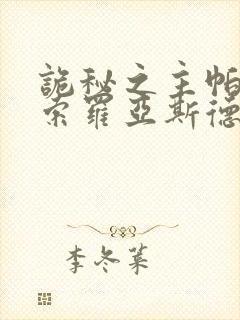 詭秘之主帕
索羅亞斯德
李冬菓